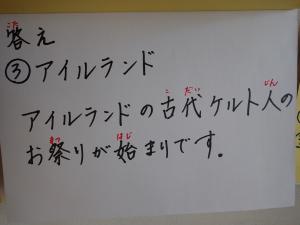 答え
③アイルランド
アイルランドの古代ケルト人の
お祭りが始まりです。